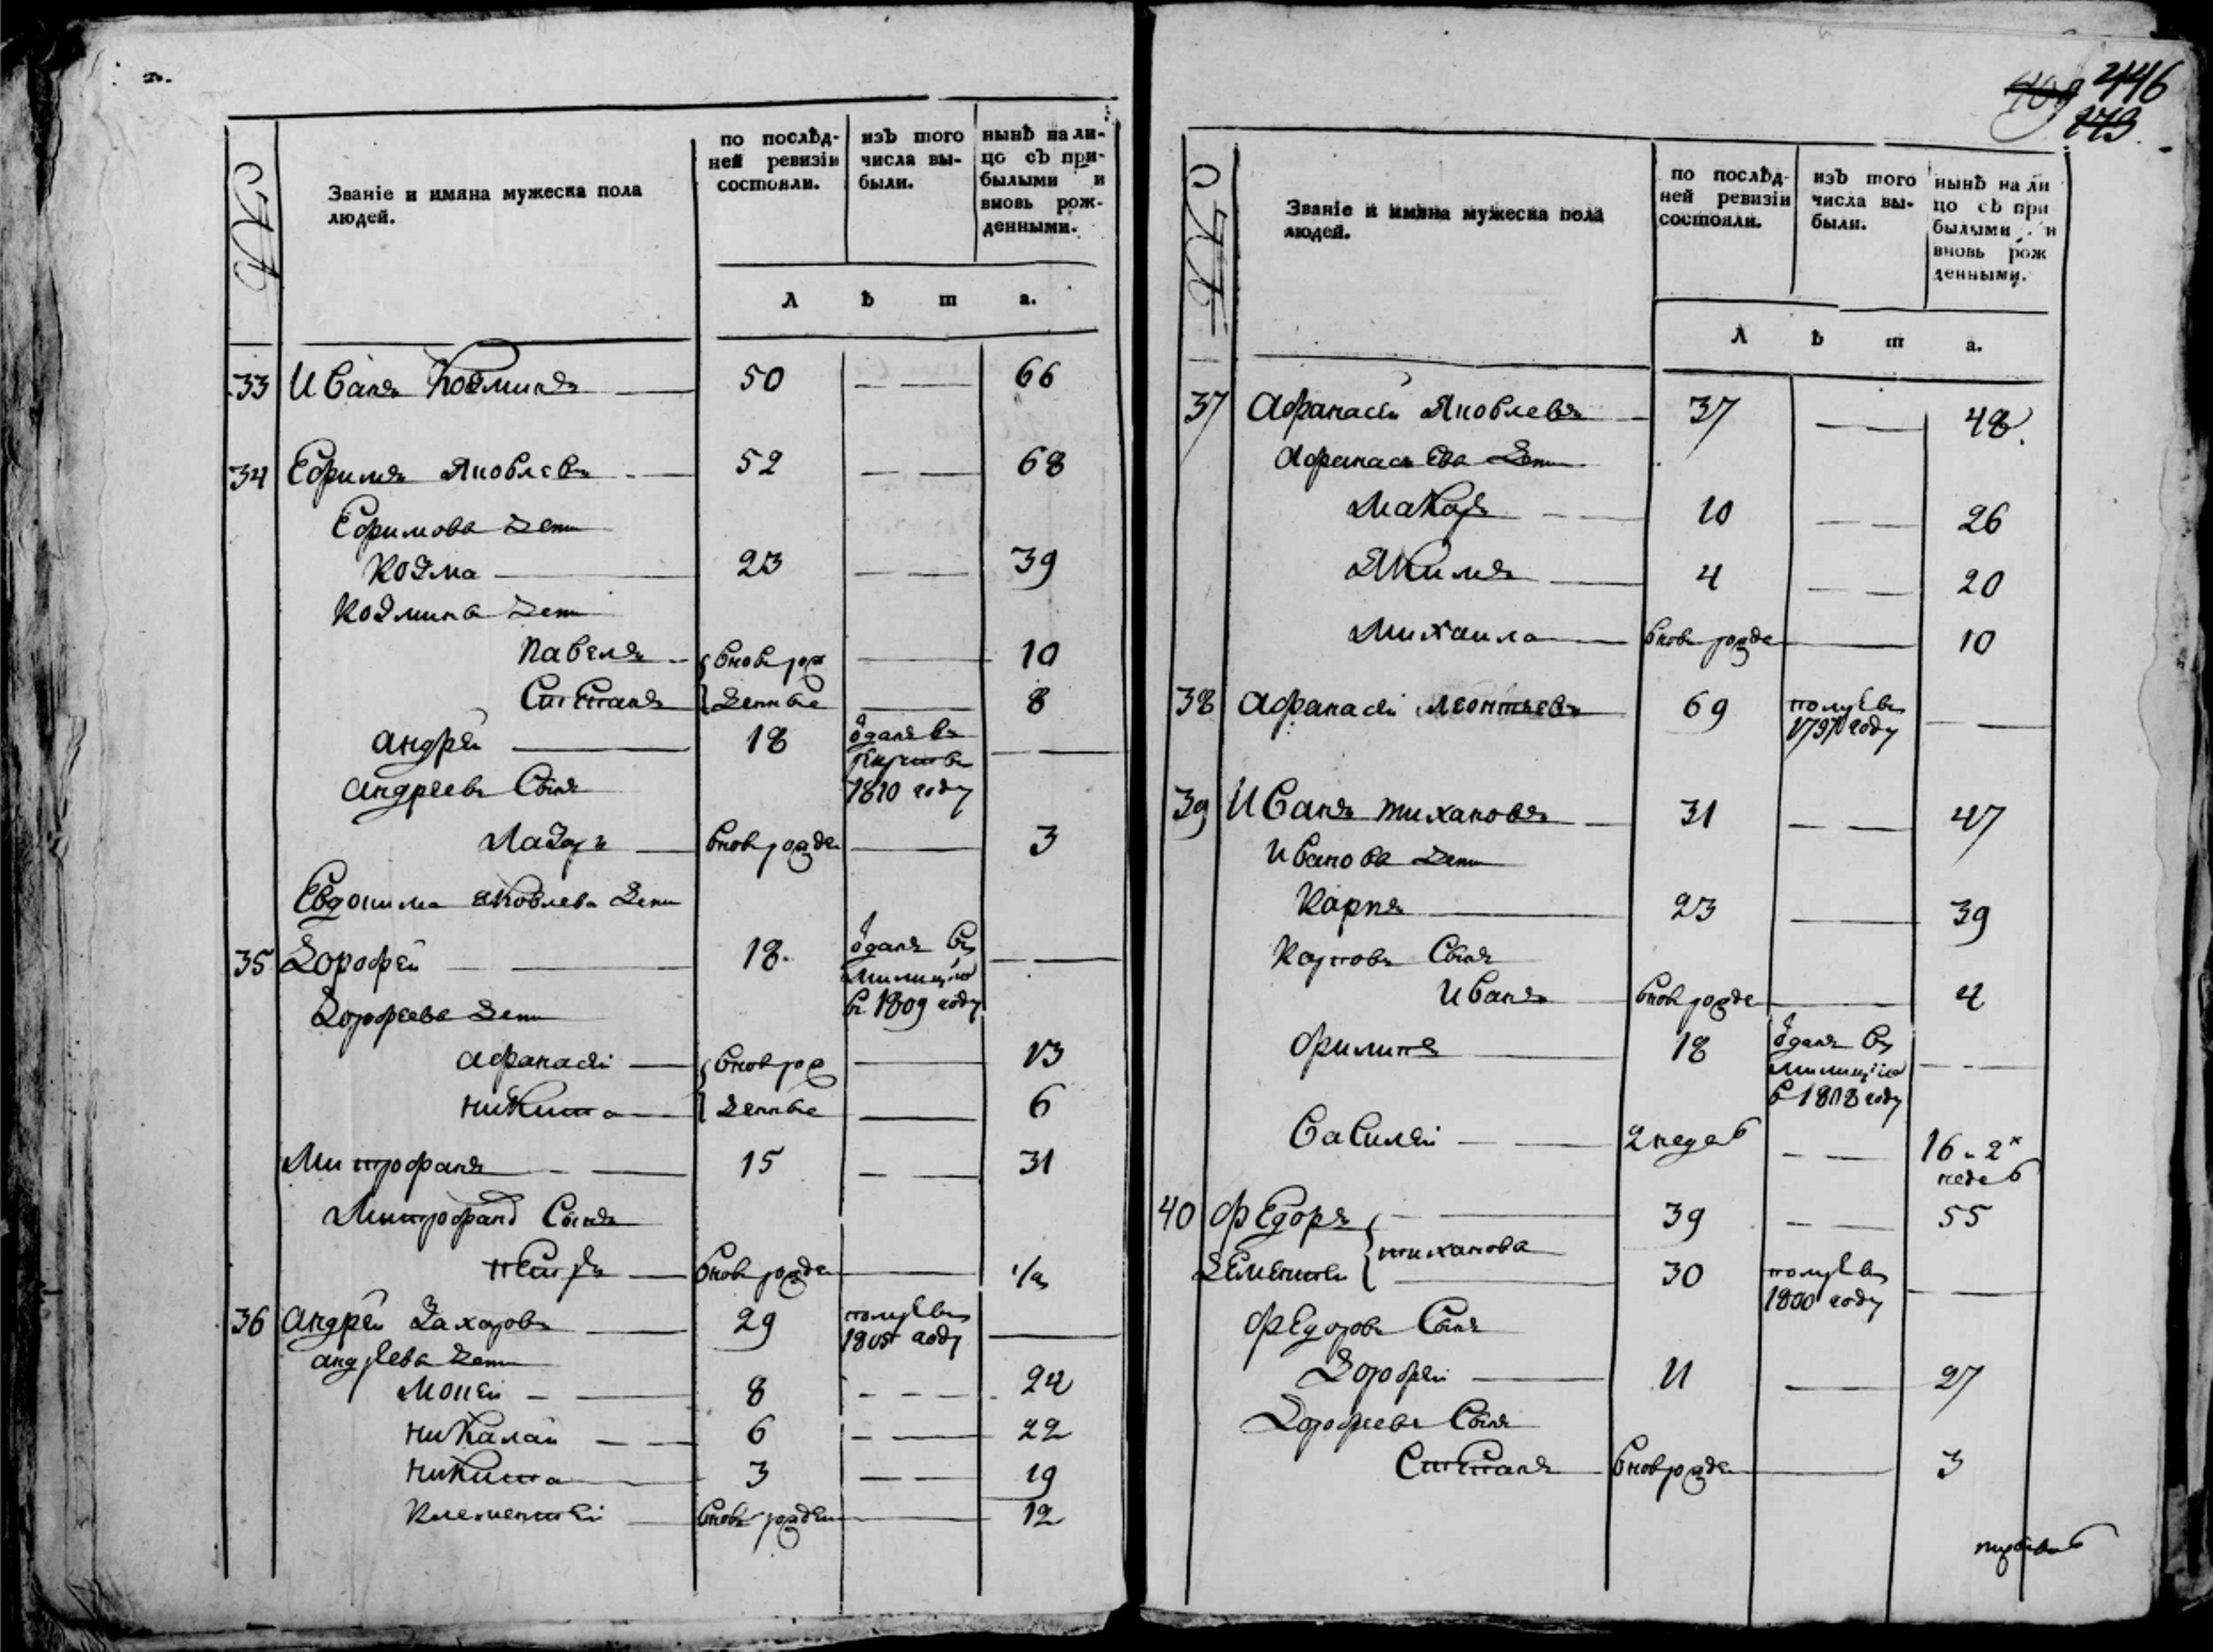 Званіе и имяна мужеска пола
людей.
по послѣд-
ней ревизіи
состояли.
изъ того
числа вы-
были.
нынѣ на ли-
цо съ при-
былыми и
вновь рож-
денными.
Л ѣ т а.
33 Иванъ Козминъ 50 — — 66
34 Ефимъ Яковлевъ 52 — — 68
Ефимова дети
Козма 23 — — 39
Козмина дети
Павелъ вновь рож — 10
Степанъ денные — 8
Андрей 18 ѿданъ въ
рекруты
1810 году —
Андреевъ Сынъ
Лазарь вновь рожде — 3
Евдокима Яковлева дети
35 Дорофей 18 ѿданъ въ
милицию
въ 1809 году —
Дорофеева дети
Афанасей вновь рож — 13
Никита денные — 6
Митрофанъ 15 — — 31
Митрофана Сынъ
Петръ вновь рожде —
36 Андрей Захаровъ 29 помре въ
1805 году —
Андреева дети
Мокей 8 — — 24
Никалай 6 — — 22
Никита 3 — — 19
Клементей вновь рожден — 12
446
Званіе и имяна мужеска пола
людей.
по послѣд-
ней ревизіи
состояли.
изъ того
числа вы-
были.
нынѣ на ли
цо съ при
былыми и
вновь рож
денными.
Л ѣ т а.
37 Афанасей Яковлевъ 37 — — 48
Афанасьева дети
Макаръ 10 — — 26
Якимъ 4 — — 20
Михаила вновь рожде — 10
38 Афанасей Леонтьевъ 69 помре въ
1797 году —
39 Иванъ Тихановъ 31 — — 47
Иванова дети
Карпъ 23 — 39
Карповъ Сынъ
Иванъ вновь рожде — 4
Филипъ 18 ѿданъ въ
милицию
в 1808 году —
Василей 2 недел — — 16 и 2х
недел
40 Федоръ 39 — — 55
Тиханова
Дементей 30 помре въ
1800 году —
Федоровъ Сынъ
Дорофей 11 — 27
Дорофеевъ Сынъ
Степанъ вновь рожде — 3